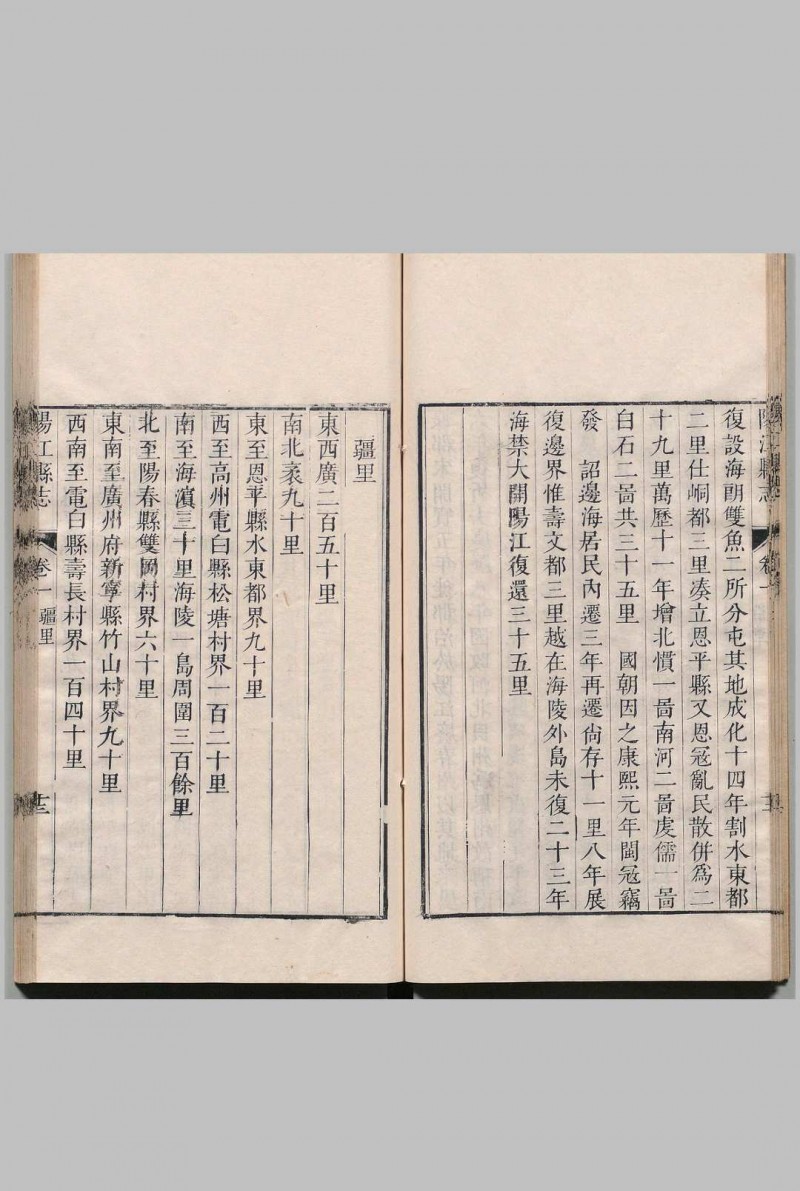 陽江縣志 卷一
復設海朗雙魚二所分屯其地成化十四年割水東都
二里仕峒都三里湊立恩平縣又恩寇亂民散併為二
十九里萬歷十一年增北慣一啚南河二啚虔儒一啚
白石二啚共三十五里 國朝因之康熙元年閩寇竊
發 詔邊海居民內遷三年再遷尙存十一里八年展
復邊界惟壽文都三里越在海陵外島未復二十三年
海禁大開陽江復還三十五里
疆里
東西廣二百五十里
南北袤九十里
東至恩平縣水東都界九十里
西至高州電白縣松塘村界一百二十里
南至海濵三十里海陵一島周圍三百餘里
北至陽春縣雙岡村界六十里
東南至廣州府新寧縣竹山村界九十里
西南至電白縣壽長村界一百四十里
陽江縣志 卷一 疆里